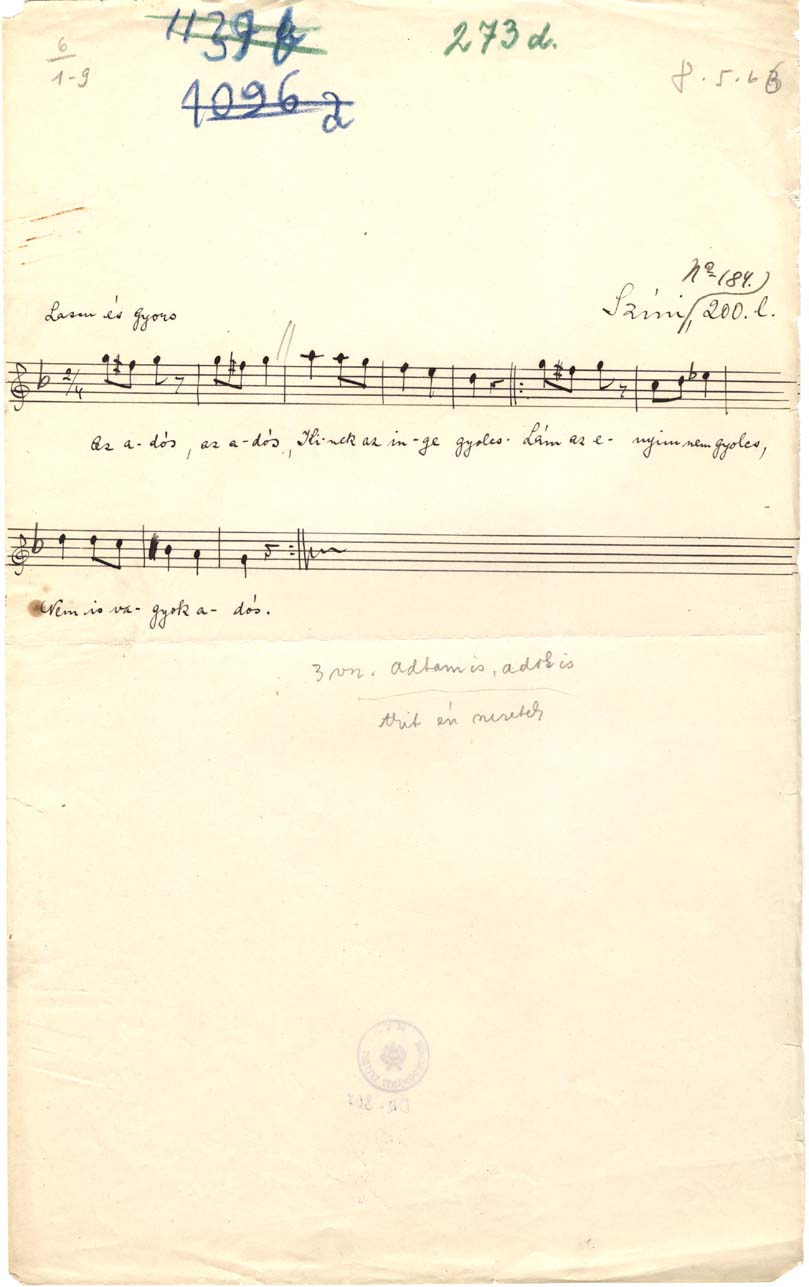 6
1-9
1139 b
1096 d
273 d.
8.5.6
No (84.)
Színi, 200. l.
Lassu és Gyors
2/4
Az a-dós, az a-dós, Ki-nek az in-ge gyolcs. Lám az e-nyim nem gyolcs,
Nem is va-gyok a-dós.
3 vsz. Adtam is, adok is
Akit én szeretek